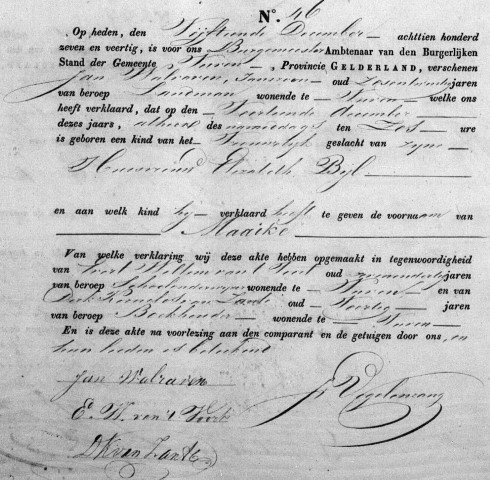 No. 46
Op heden, den Vijftiende December achttien honderd
zeven en veertig, is voor ons Burgemeester Ambtenaar van den Burgerlijken
Stand der Gemeente Vuren, Provincie GELDERLAND, verschenen
Jan Walraven, Janszoon oud jaren
van beroep Landman wonende te Vuren welke ons
heeft verklaard, dat op den Veertiende december
dezes jaars, alhier des namiddags ten Zes ure
is geboren een kind van het Vrouwelijk geslacht van zijne
Huisvrouw Elizabeth Byl
en aan welk kind hij verklaard heeft te geven de voornaam van
Maaike
Van welke verklaring wij deze akte hebben opgemaakt in tegenwoordigheid
van Evert Willem van 't Voort oud jaren
van beroep Schoolonderwyzer wonende te Vuren en van
Dirk van Zante oud Veertig jaren
van beroep wonende te Vuren
En is deze akte na voorlezing aan den comparant en de getuigen door ons, en
hun lieden is geteekend
Jan Walraven
E. W. van 't Voort
D K van Zante
Vogelenzang